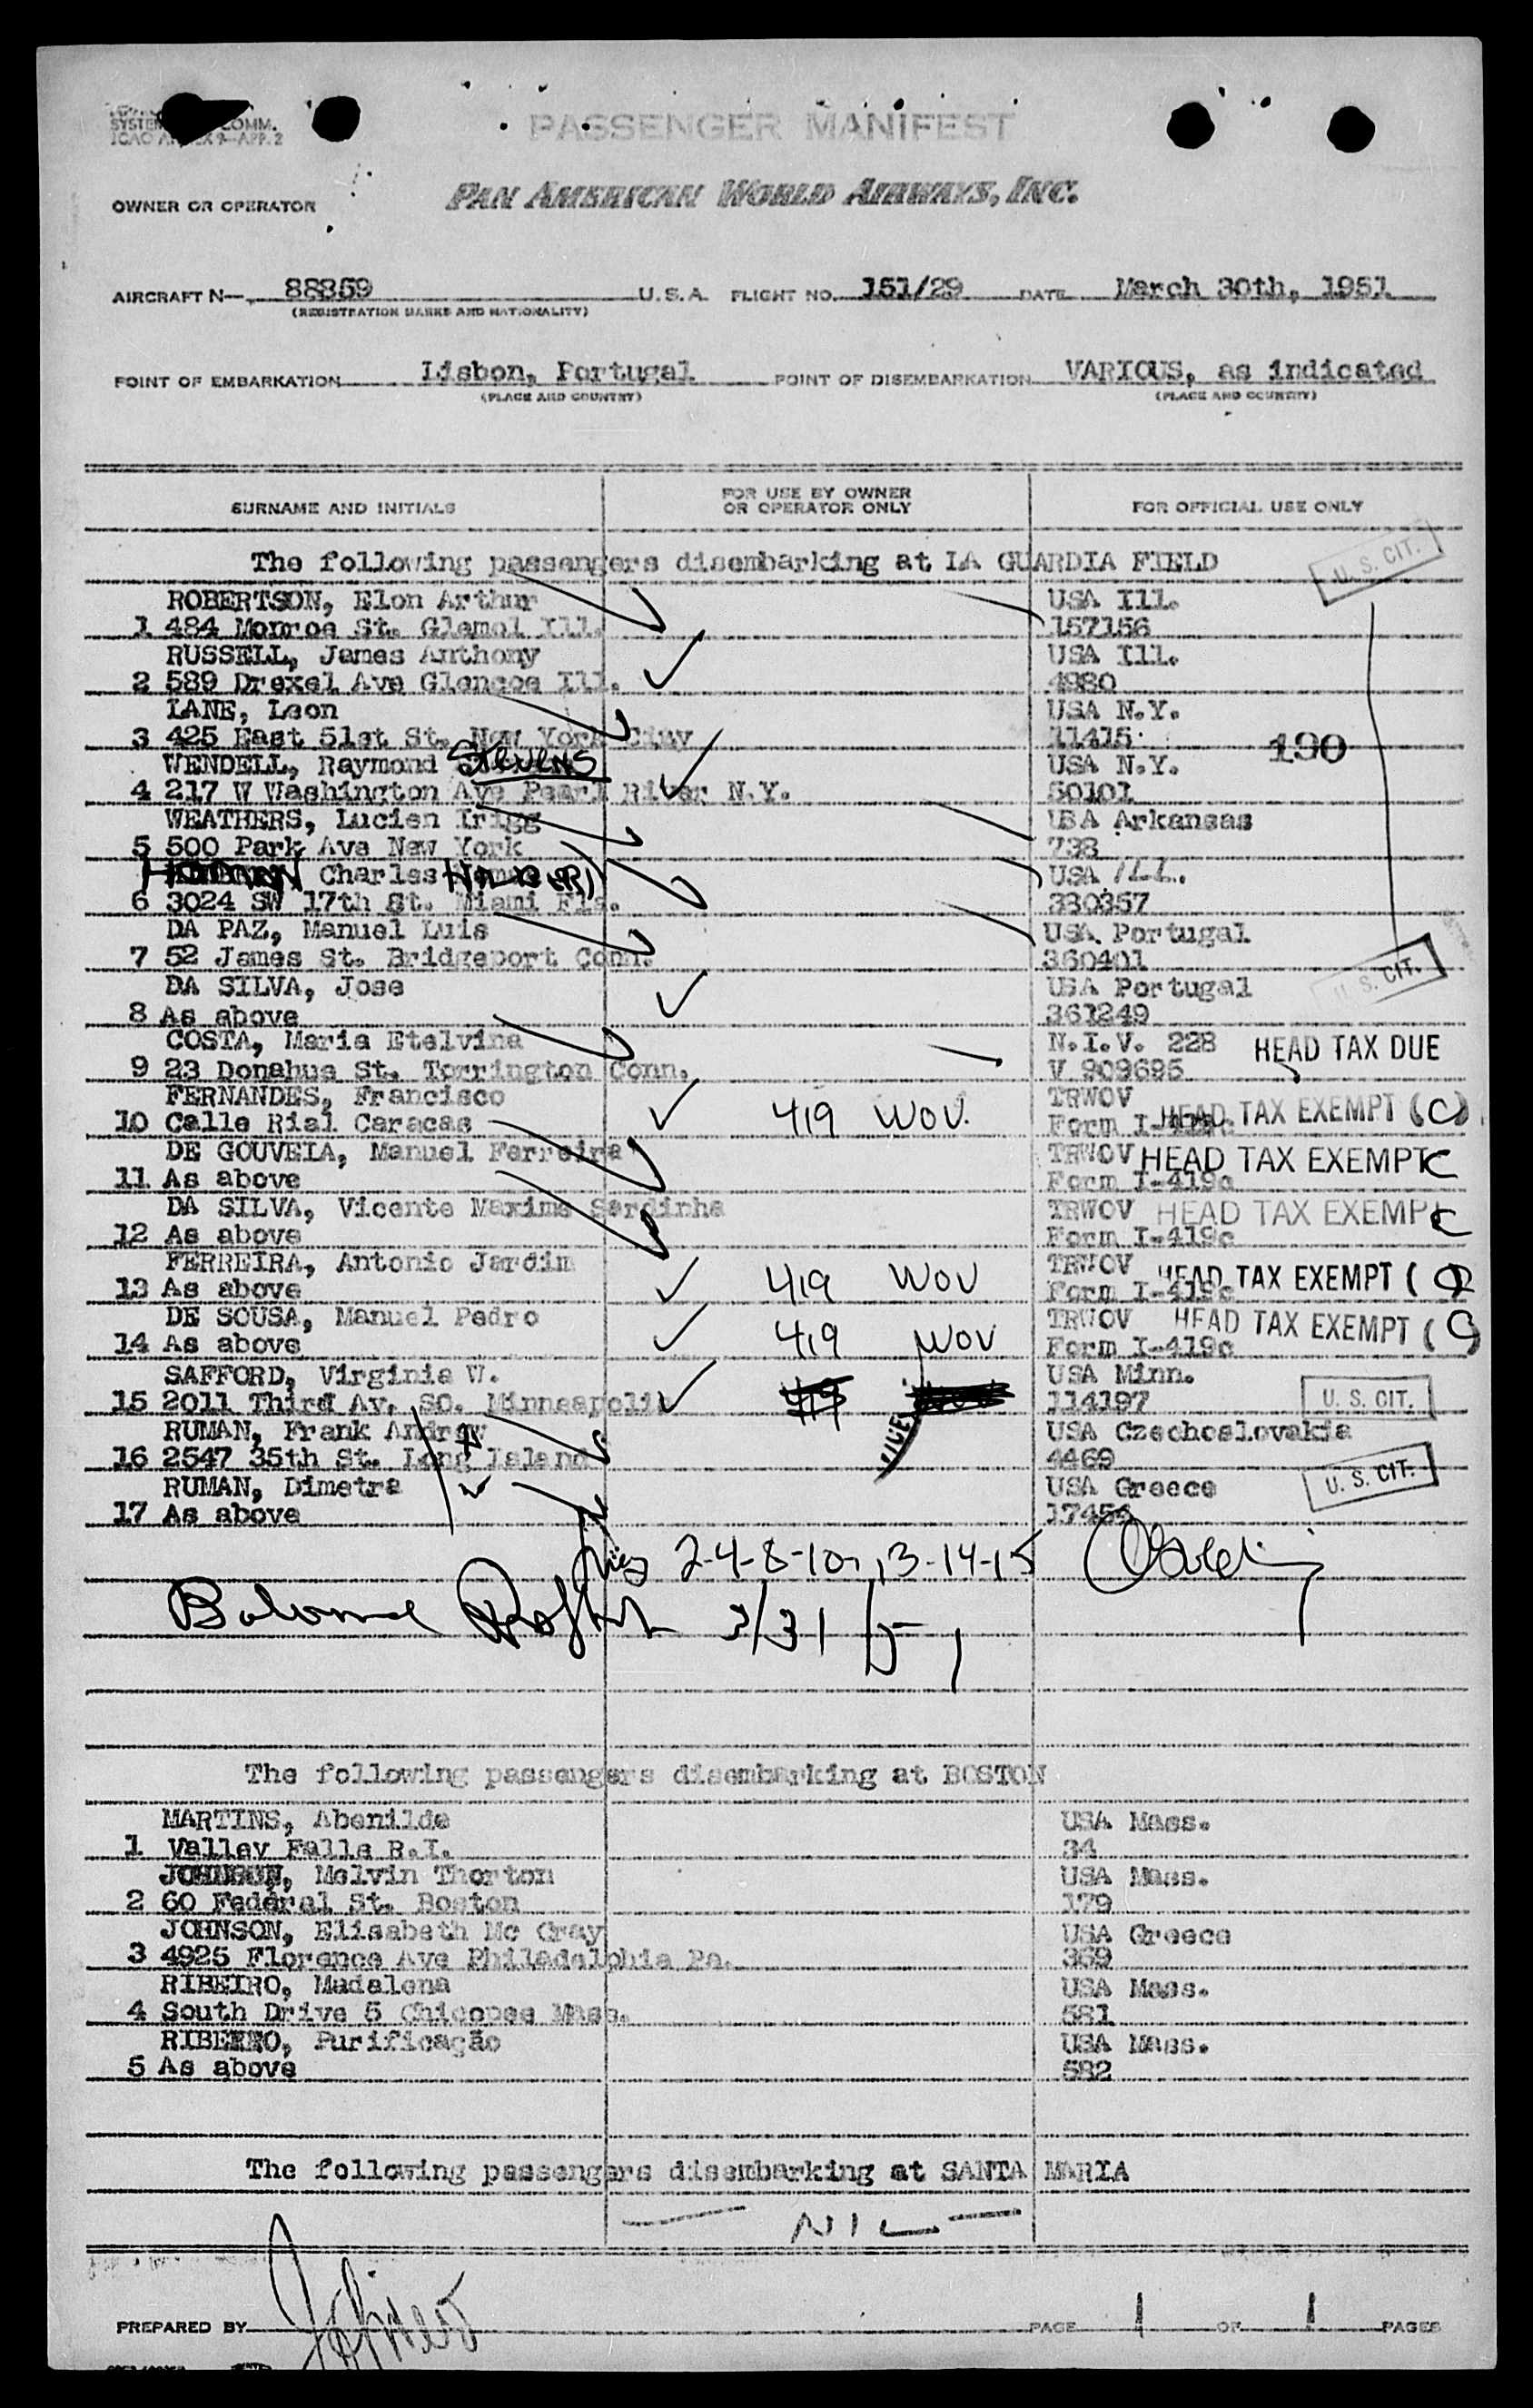 SYSTEM COMM.
PASSENGER MANIFEST
OWNER OR OPERATOR PAN AMERICAN WORLD AIRWAYS, INC.
AIRCRAFT N—. 88859 U.S.A. FLIGHT NO. 151/29 DATE March 30th, 1951
(REGISTRATION MARKS AND NATIONALITY)
POINT OF EMBARKATION Lisbon, Portugal POINT OF DISEMBARKATION VARIOUS, as indicated
(PLACE AND COUNTRY) (PLACE AND COUNTRY)
SURNAME AND INITIALS FOR USE BY OWNER OR OPERATOR ONLY FOR OFFICIAL USE ONLY
The following passengers disembarking at LA GUARDIA FIELD U. S. CIT.
ROBERTSON, Elon Arthur USA Ill.
1 484 Monroe St. Glamol Ill. 157156
RUSSELL, James Anthony USA Ill.
2 589 Drexel Ave Glencoe Ill. 4980
LANE, Leon USA N.Y.
3 425 East 51st St. New York City 11415 190
WENDELL, Raymond STEVENS USA N.Y.
4 217 W Washington Ave Pearl River N.Y. 50101
WEATHERS, Lucien Trigg USA Arkansas
5 500 Park Ave New York 738
Charles USA ILL.
6 3024 SW 17th St. Miami Fla. 330357
DA PAZ, Manuel Luis USA Portugal
7 52 James St. Bridgeport Conn. 360401 U. S. CIT.
DA SILVA, Jose USA Portugal
8 As above 361249
COSTA, Maria Etelvina N.I.V. 228 HEAD TAX DUE
9 23 Donahue St. Torrington Conn. V 909695
FERNANDES, Francisco TRWOV
10 Calle Rial Caracas 419 WOV. Form I-419c HEAD TAX EXEMPT (C)
DE GOUVEIA, Manuel Ferreira TRWOV HEAD TAX EXEMPT C
11 As above Form I-419c
DA SILVA, Vicente Maximo Sardinha TRWOV HEAD TAX EXEMPT C
12 As above Form I-419c
FERREIRA, Antonio Jardim TRWOV
13 As above 419 WOV Form I-419c HEAD TAX EXEMPT (C)
DE SOUSA, Manuel Pedro TRWOV HEAD TAX EXEMPT (C)
14 As above 419 WOV Form I-419c
SAFFORD, Virginia W. USA Minn.
15 2011 Third Av. SO. Minneapolis 114197 U. S. CIT.
RUMAN, Frank Andrew USA Czechoslovakia
16 2547 35th St. Long Island 4469
RUMAN, Dimetra USA Greece U. S. CIT.
17 As above 17454
2-4-8-10-13-14-15
3/31/51
The following passengers disembarking at BOSTON
MARTINS, Abenilde USA Mass.
1 Valley Falls R.I. 34
JOHNSON, Melvin Thorton USA Mass.
2 60 Federal St. Boston 179
JOHNSON, Elisabeth Mc Cray USA Greece
3 4925 Florence Ave Philadelphia Pa. 369
RIBEIRO, Madalena USA Mass.
4 South Drive 5 Chicopee Mass. 581
RIBEIRO, Purificação USA Mass.
5 As above 582
The following passengers disembarking at SANTA MARIA
— NIL —
PREPARED BY PAGE 1 OF 1 PAGES